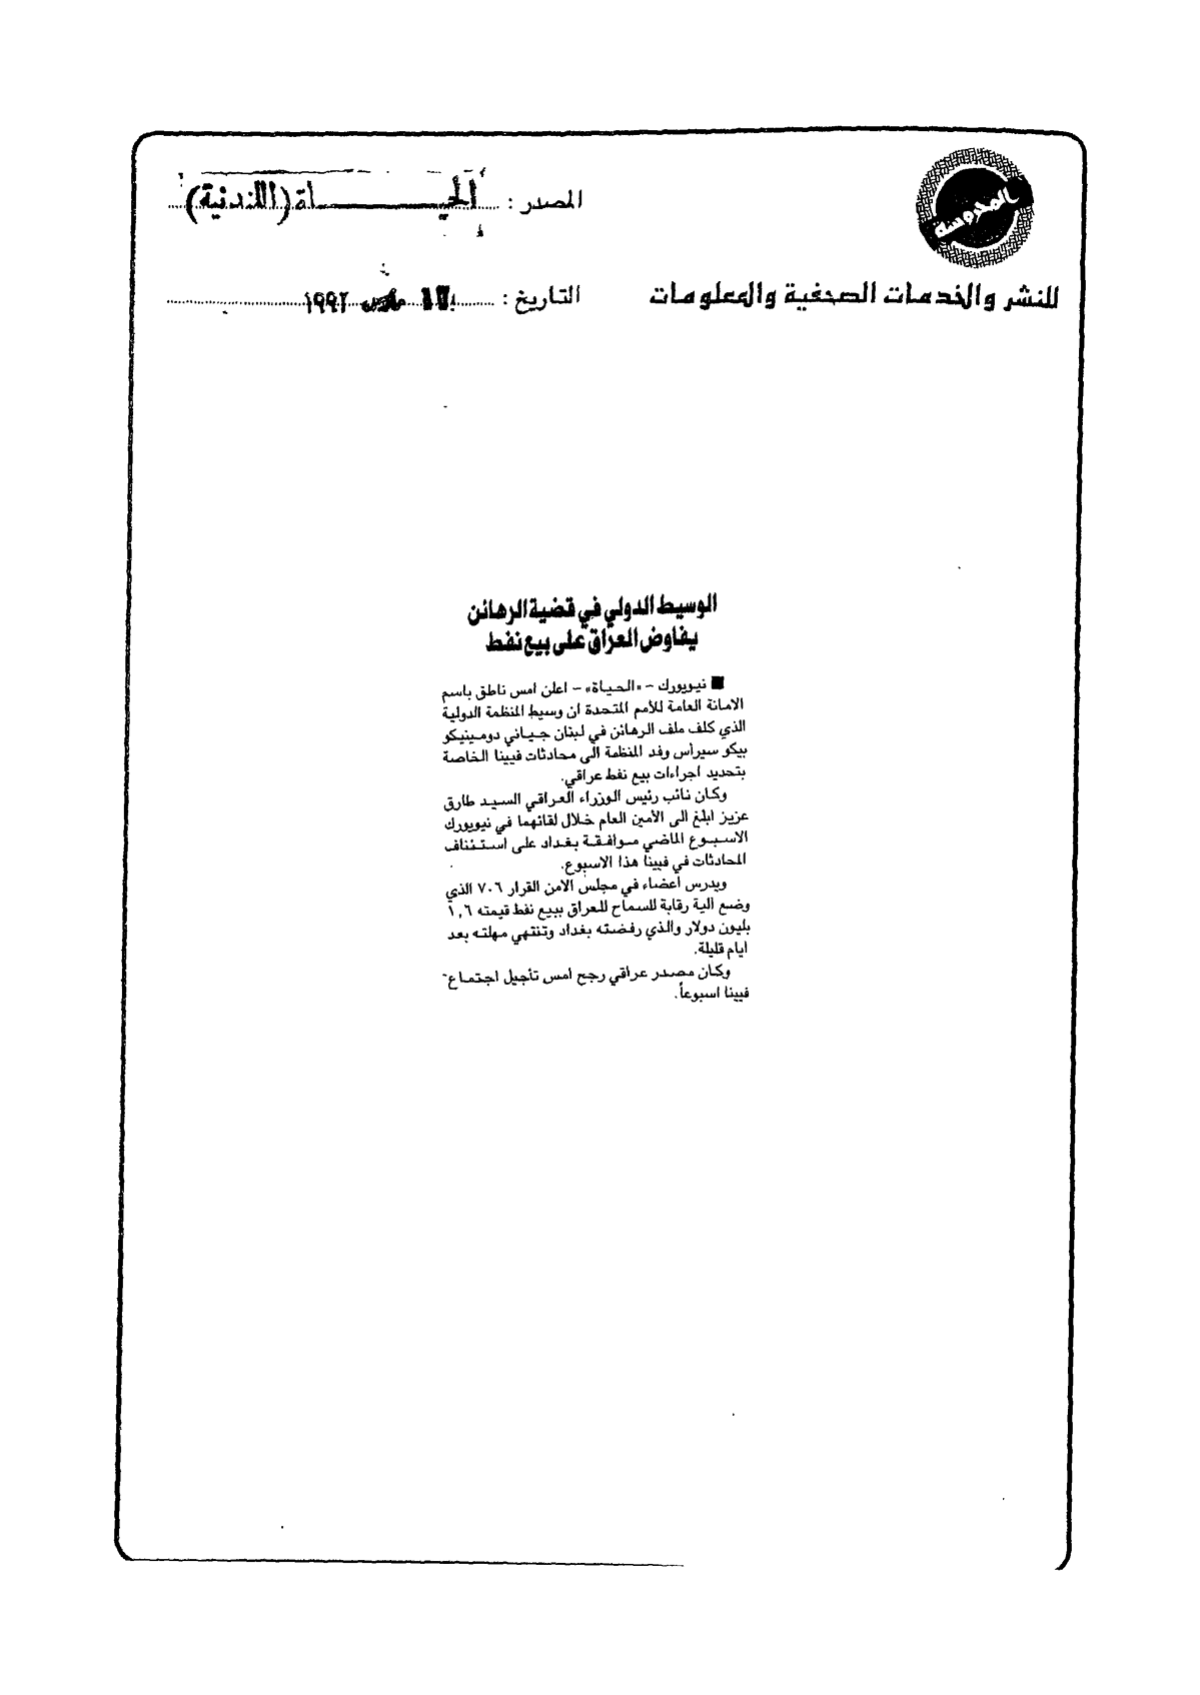 المحروسة
للنشر والخدمات الصحفية والمعلومات
المصدر : الحيــــــاة (اللندنية)
التاريخ : ١٧ مارس ١٩٩٢
الوسيط الدولي في قضية الرهائن
يفاوض العراق على بيع نفط
■ نيويورك – «الحياة» – اعلن امس ناطق باسم
الامانة العامة للأمم المتحدة ان وسيط المنظمة الدولية
الذي كلف ملف الرهائن في لبنان جياني دومينيكو
بيكو سيرأس وفد المنظمة الى محادثات فيينا الخاصة
بتحديد اجراءات بيع نفط عراقي.
وكان نائب رئيس الوزراء العراقي السيد طارق
عزيز ابلغ الى الأمين العام خلال لقائهما في نيويورك
الاسبوع الماضي موافقة بغداد على استئناف
المحادثات في فيينا هذا الاسبوع.
ويدرس أعضاء في مجلس الامن القرار ٧٠٦ الذي
وضع آلية رقابة للسماح للعراق ببيع نفط قيمته ١,٦
بليون دولار والذي رفضته بغداد وتنتهي مهلته بعد
ايام قليلة.
وكان مصدر عراقي رجح امس تأجيل اجتماع
فيينا اسبوعاً.